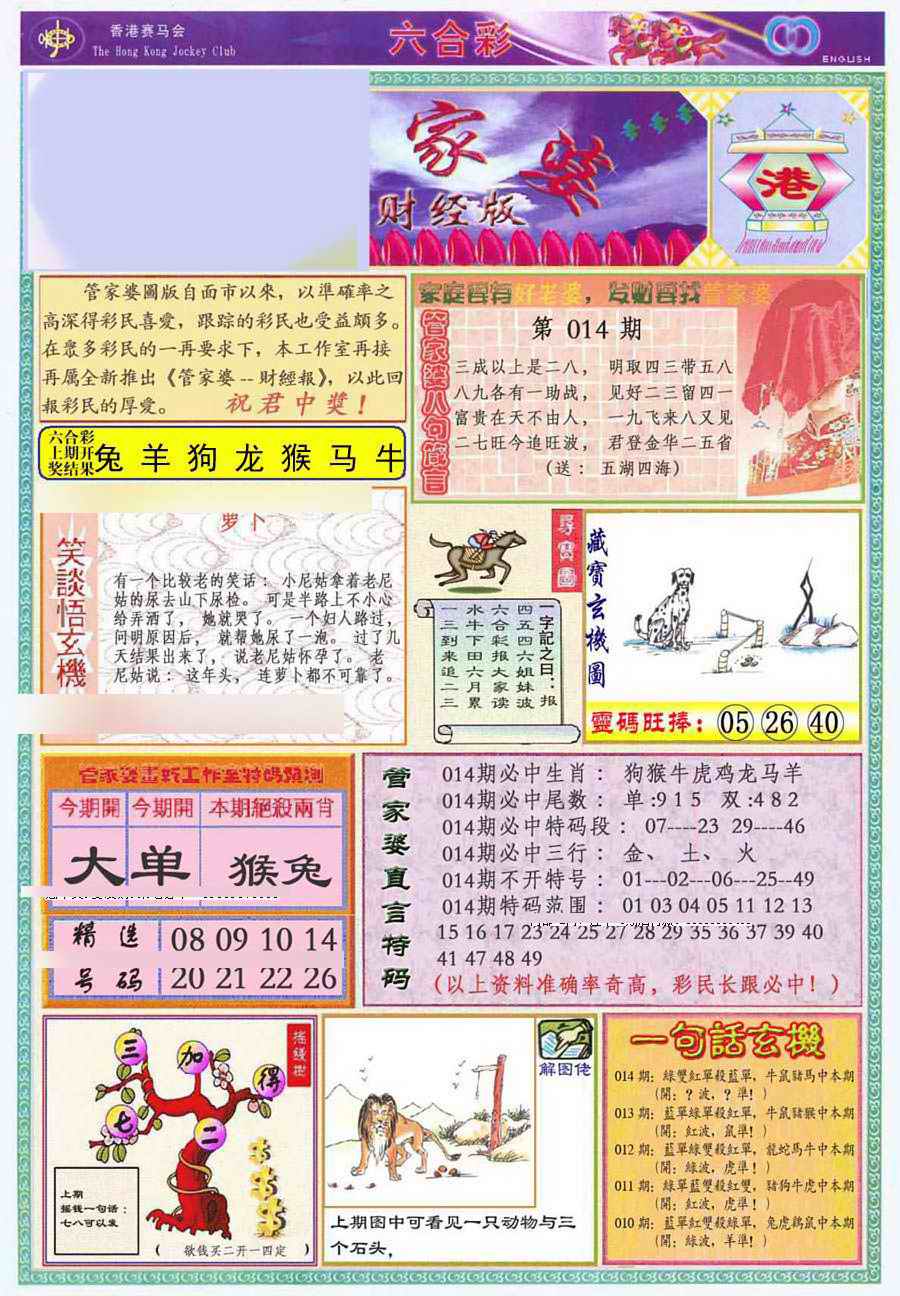 香港赛马会
The Hong Kong Jockey Club
六合彩
ENGLISH
家婆
财经版
港
管家婆圖版自面市以來，以準確率之
高深得彩民喜愛，跟踪的彩民也受益頗多。
在眾多彩民的一再要求下，本工作室再接
再厲全新推出《管家婆--財經報》，以此回
報彩民的厚愛。 祝君中獎！
六合彩
上期开
奖结果
兔 羊 狗 龙 猴 马 牛
家庭要有好老婆，发财要找管家婆
管家婆八句箴言
第 014 期
三成以上是二八， 明取四三带五八
八九各有一助战， 见好二三留四一
富贵在天不由人， 一九飞来八又见
二七旺今追旺波， 君登金华二五省
(送： 五湖四海)
笑談悟玄機
萝卜
有一个比较老的笑话： 小尼姑拿着老尼
姑的尿去山下尿检。 可是半路上不小心
给弄洒了， 她就哭了。 一个妇人路过，
问明原因后， 就帮她尿了一泡。 过了几
天结果出来了， 说老尼姑怀孕了。 老
尼姑说： 这年头， 连萝卜都不可靠了。
尋寶圖
一字記之曰：报
四五四六姐妹波
六合彩报大家读
水牛下田六月累
一三到来追二三
藏寶玄機圖
靈碼旺捧： 05 26 40
今期開 今期開 本期絕殺兩肖
大 单 猴兔
精 选 08 09 10 14
号 码 20 21 22 26
管家婆直言特码
014期必中生肖： 狗猴牛虎鸡龙马羊
014期必中尾数： 单:9 1 5 双:4 8 2
014期必中特码段： 07----23 29----46
014期必中三行： 金、 土、 火
014期不开特号： 01---02---06---25--49
014期特码范围： 01 03 04 05 11 12 13
15 16 17 23 24 25 27 28 29 35 36 37 39 40
41 47 48 49
(以上资料准确率奇高，彩民长跟必中！)
搖錢樹
三 加 得
七 二
上期
摇钱一句话：
七八可以发
( 欲钱买二开一四定 )
解图佬
上期图中可看见一只动物与三
个石头，
一句話玄機
014期：綠雙紅單殺藍單，牛鼠豬馬中本期
(開：？波，？準！)
013期：藍單綠單殺紅單，牛鼠豬猴中本期
(開：紅波，鼠準！)
012期：藍單綠雙殺紅單，龍蛇馬牛中本期
(開：綠波，虎準！)
011期：綠單藍雙殺紅雙，豬狗牛虎中本期
(開：紅波，虎準！)
010期：藍單紅雙殺綠單，兔虎鷄鼠中本期
(開：綠波，羊準！)